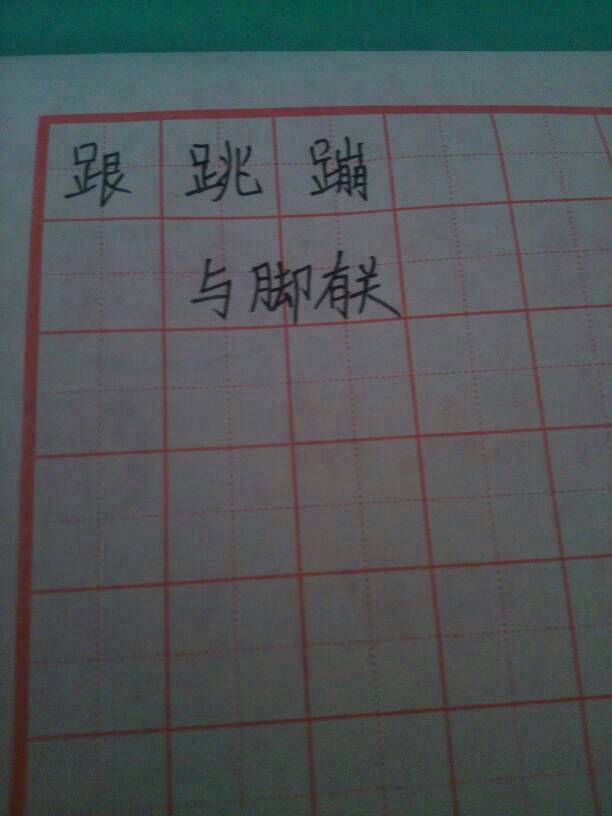 跟 跳 蹦
与脚有关